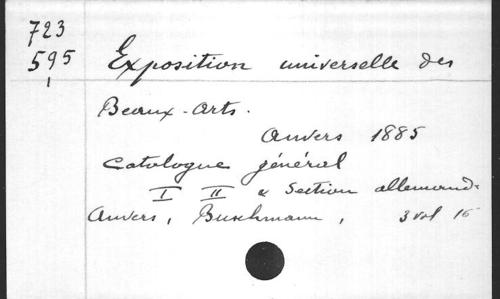 723
595
1
Exposition universelle des
Beaux-Arts.
Anvers 1885
Catalogue général
I II & Section allemand.
Anvers, Buschmann, 3 vol 16